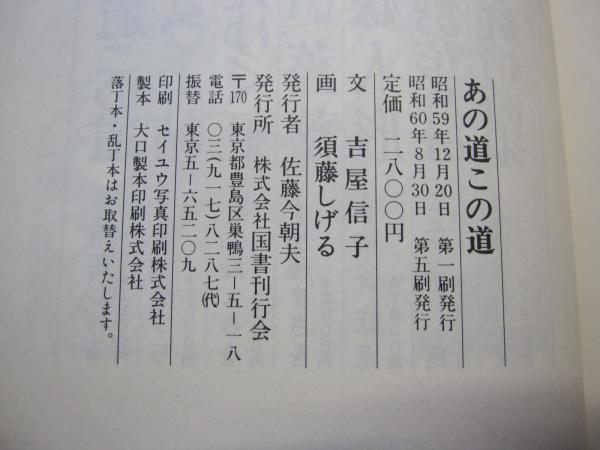 あの道この道
昭和59年12月20日 第一刷発行
昭和60年8月30日 第五刷発行
定価 二八〇〇円
文 吉屋信子
画 須藤しげる
発行者 佐藤今朝夫
発行所 株式会社国書刊行会
〒170 東京都豊島区巣鴨三-五-一八
電話 〇三(九一七)八二八七(代)
振替 東京五-六五二〇九
印刷 セイユウ写真印刷株式会社
製本 大口製本印刷株式会社
落丁本・乱丁本はお取替えいたします。